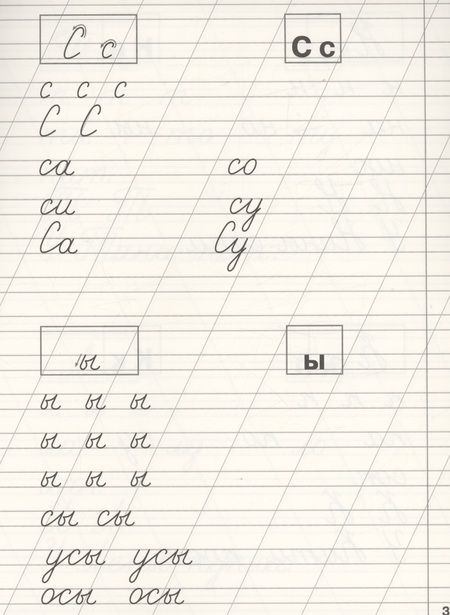 С с С с
с с с
С С
са со
си су
Са Су
ы ы
ы ы ы
ы ы ы
ы ы ы
сы сы
усы усы
осы осы
3